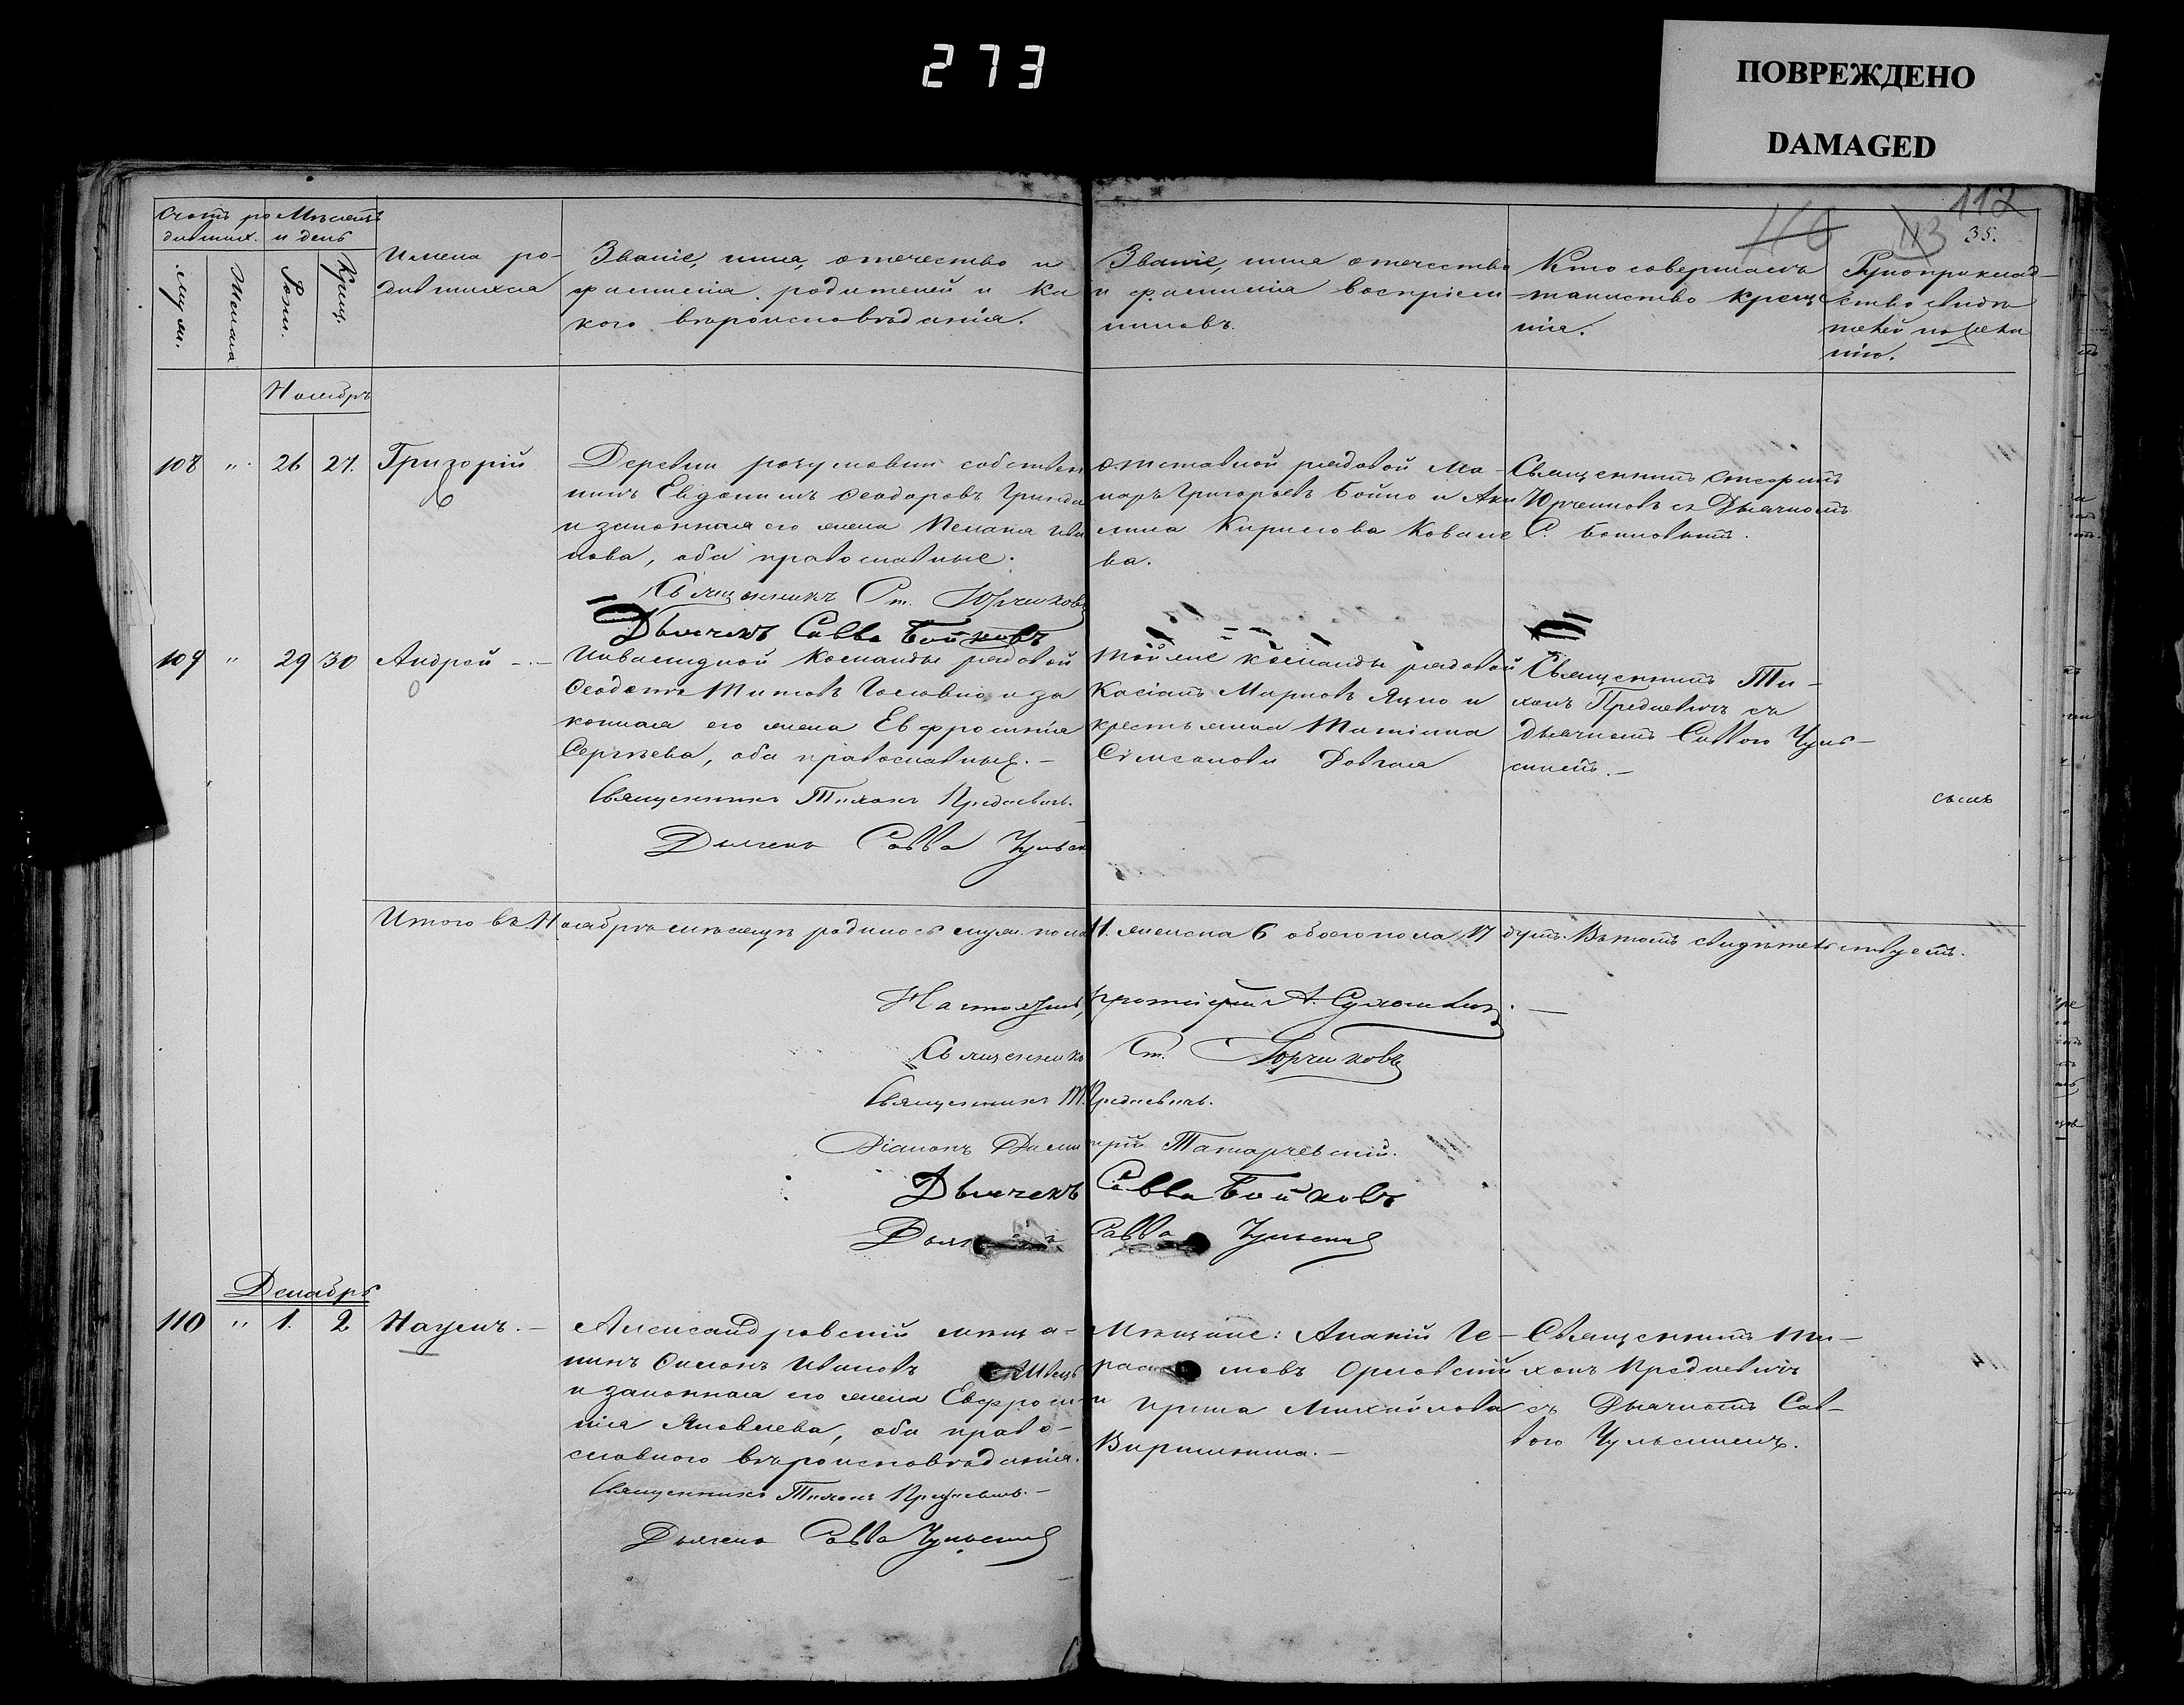 273
ПОВРЕЖДЕНО
DAMAGED
112
116 113 35.
Счетъ родившихъ.
Мѣсяцъ и день
Муж.
Женска
Рожд.
Крещ.
Имена ро-
дившихся
Званіе, имя, отечество и
фамилія родителей и ка
кого вѣроисповѣданія.
Званіе, имя отечество
и фамилія воспріем
никовъ.
Кто совершалъ
таинство креще
нія.
Рукоприклад-
ство свидѣ
телей по жела
нію.
Ноябрь
108 " 26 27. Григорій
Деревни собствен
никъ Евдокимъ Ѳеодоровъ
и законная его жена Пелагія Ива
нова, оба православные.
Священникъ Ст. Юрченковъ
Дьячекъ Савва Бойковъ
отставной рядовой Ма-
каръ Григорьевъ Бойко и Аки
лина Кирилова Ковале
ва.
Священникъ Стефанъ
Юрченковъ съ Дьячкомъ
С. Бойковымъ.
109 " 29 30 Андрей -
Инвалидной команды рядовой
Ѳеодотъ Титовъ и за
конная его жена Евфросинія
Сергѣева, оба православные. -
Священникъ Тихонъ Предаевичъ.
Дьячекъ Савва
Той же команды рядовой
Касіанъ Марковъ Яцко и
крестьянка Татіана
Симеонова Довгая
Священникъ Ти-
хонъ Предаевичъ съ
дьячкомъ Саввою
Итого въ Ноябрѣ мѣсяцѣ родилось муж. пола 11. женска 6 обоего пола 17 душъ. Въ томъ свидѣтельствуетъ.
Настоятель, протоіерей А.
Священникъ Ст. Юрченковъ
Священникъ Т. Предаевичъ.
Діаконъ Димитрій Татарчевскій.
Дьячекъ Савва Бойковъ
Савва
Декабрь
110 " 1. 2 Наумъ. -
Александровскій мѣща-
нинъ Симонъ Ивановъ Швецъ
и законная его жена Евфроси-
нія Яковлева, оба право-
славного вѣроисповѣданія.
Священникъ Тихонъ Предаевичъ. -
Дьячекъ Савва
Мѣщане: Ананій Ге-
расимовъ Орловскій
и Ирина Михайлова
Священникъ Ти-
хонъ Предаевичъ
съ Дьячкомъ Сав-
вою